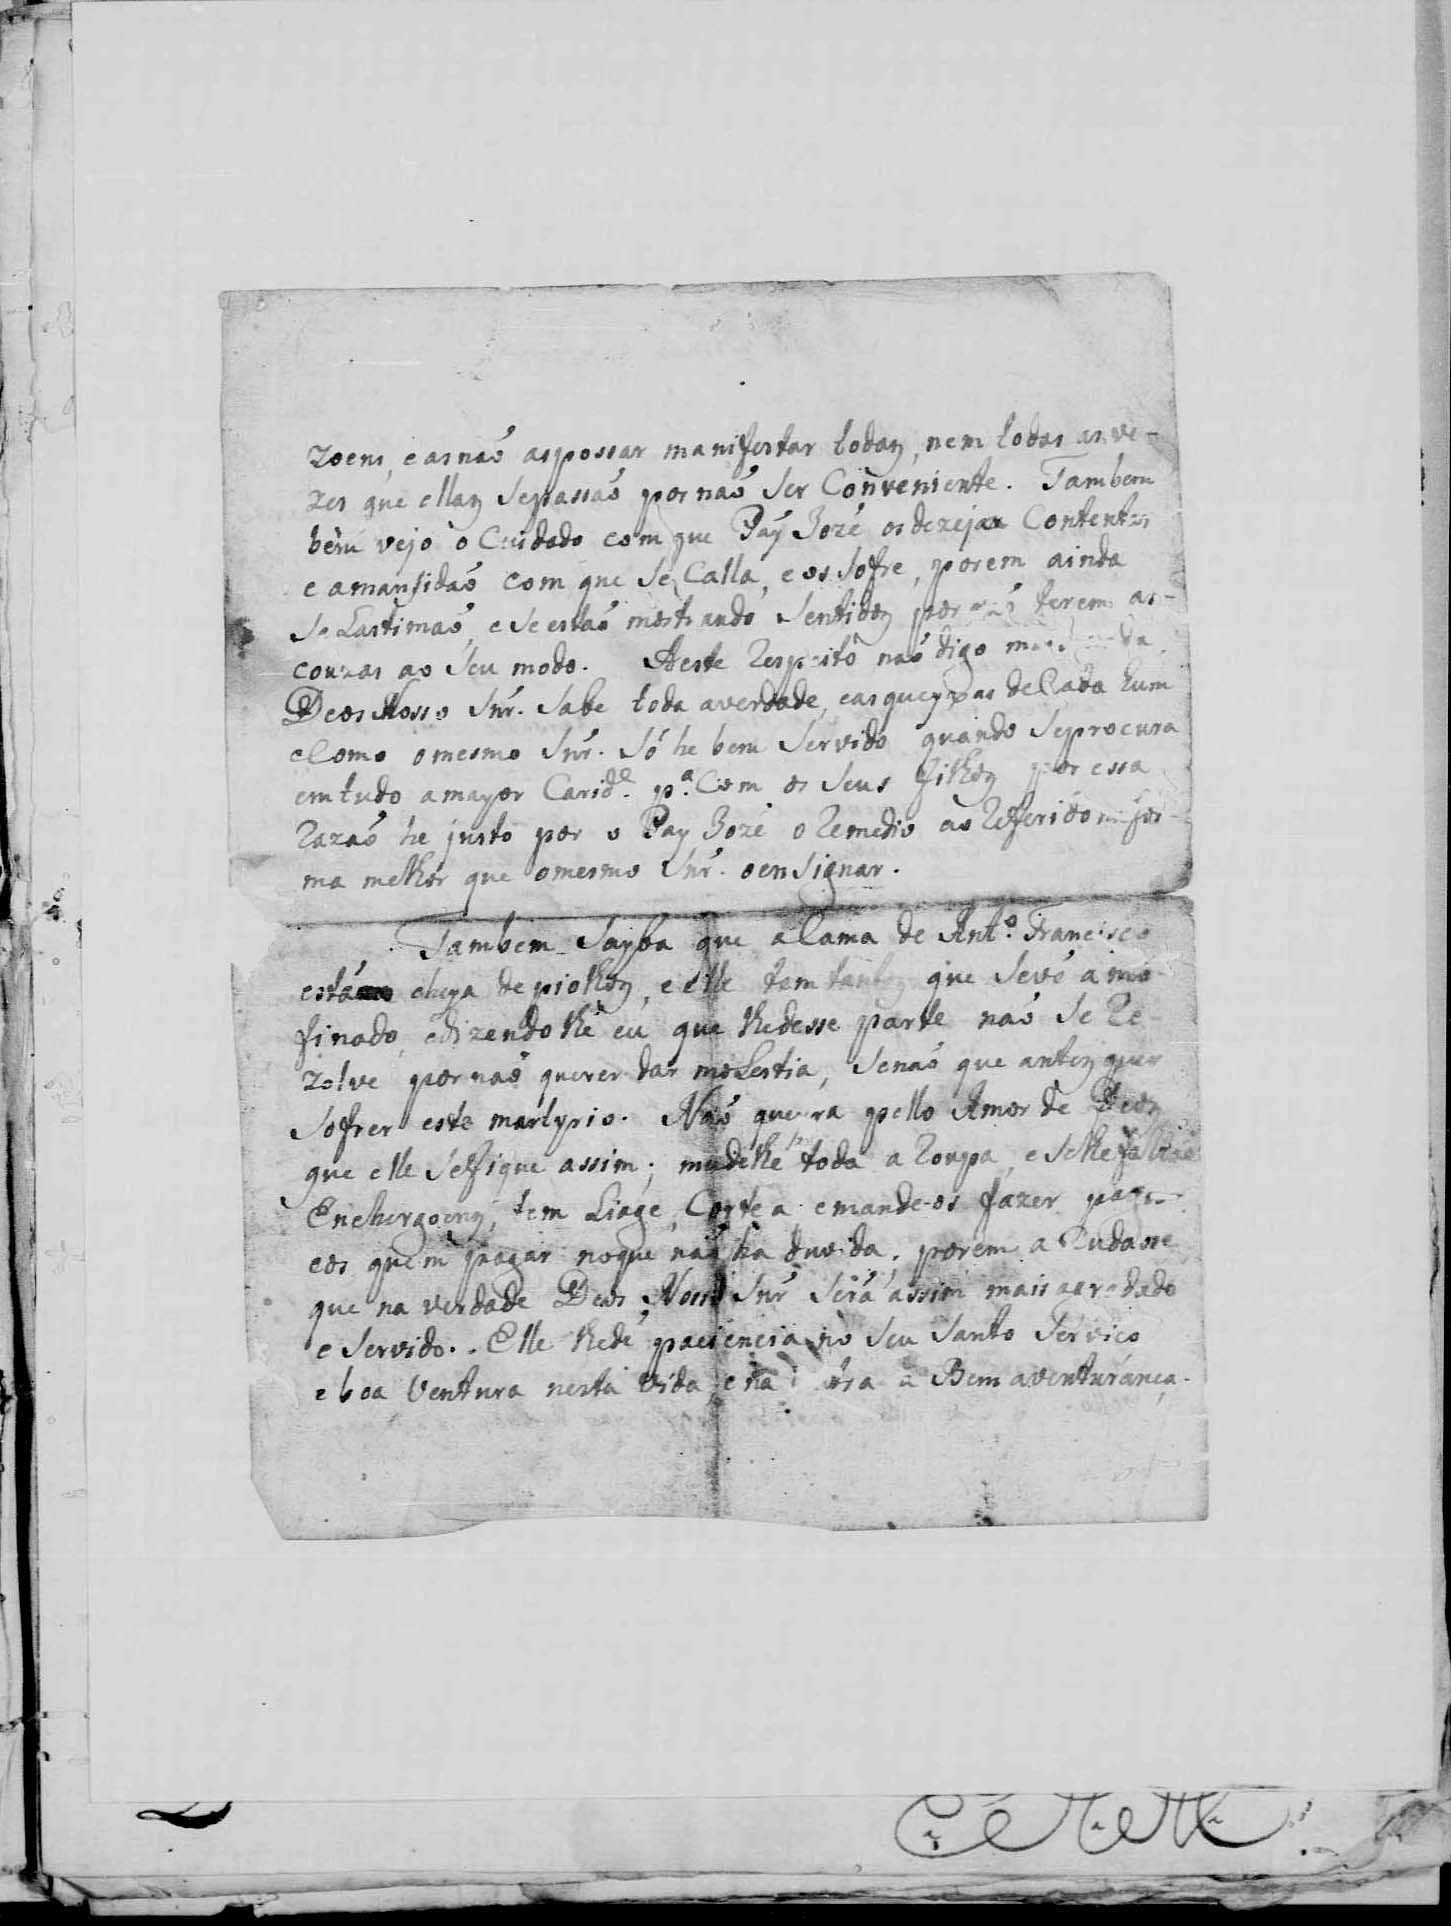 zoens, e as naõ as possar manifestar todas, nem todas as ve-
zes que ellas se passaõ por naõ ser Conveniente. Tambem
bem vejo o Cuidado com que Pay Jozé os dezeja Contentes
e a mansidaõ com que se Calla, e os sofre, porem ainda
se Lastimaõ, e se estaõ mostrando sentidos por naõ terem as
couzas ao seu modo. A este Respeito naõ digo
Deos Nosso Snr. sabe toda a verdade, e as queyxas de Cada hum
e Como o mesmo Snr. só he bem servido quando se procura
em tudo a mayor Carid.e p.a Com os seus filhos por essa
Razaõ he justo por o Pay Jozé o Remedio ao Referido na for-
ma melhor que o mesmo Snr. o ensignar.
Tambem Sayba que a Cama de Ant.o Francisco
está cheya de piolhos, e elle tem tantos que se vé a mo
finado, e dizendo lhe eu que lhe desse parte naõ se Re-
zolve por naõ querer dar moLestia, senaõ que antes quer
sofrer este martyrio. Naõ queira pello Amor de Deos
que elle se fique assim; mude lhe toda a Roupa, e se lhe
Enchergoens, tem Liage, Corte a e mande-os fazer
eos quem pagar no que naõ ha duvida. porem a Rudasse
que na verdade Deos Nosso Snr será assim mais agradado
e servido. Elle lhe dé paciencia no seu Santo Serviço
e boa Ventura nesta Vida, e na a Bem aventurança.